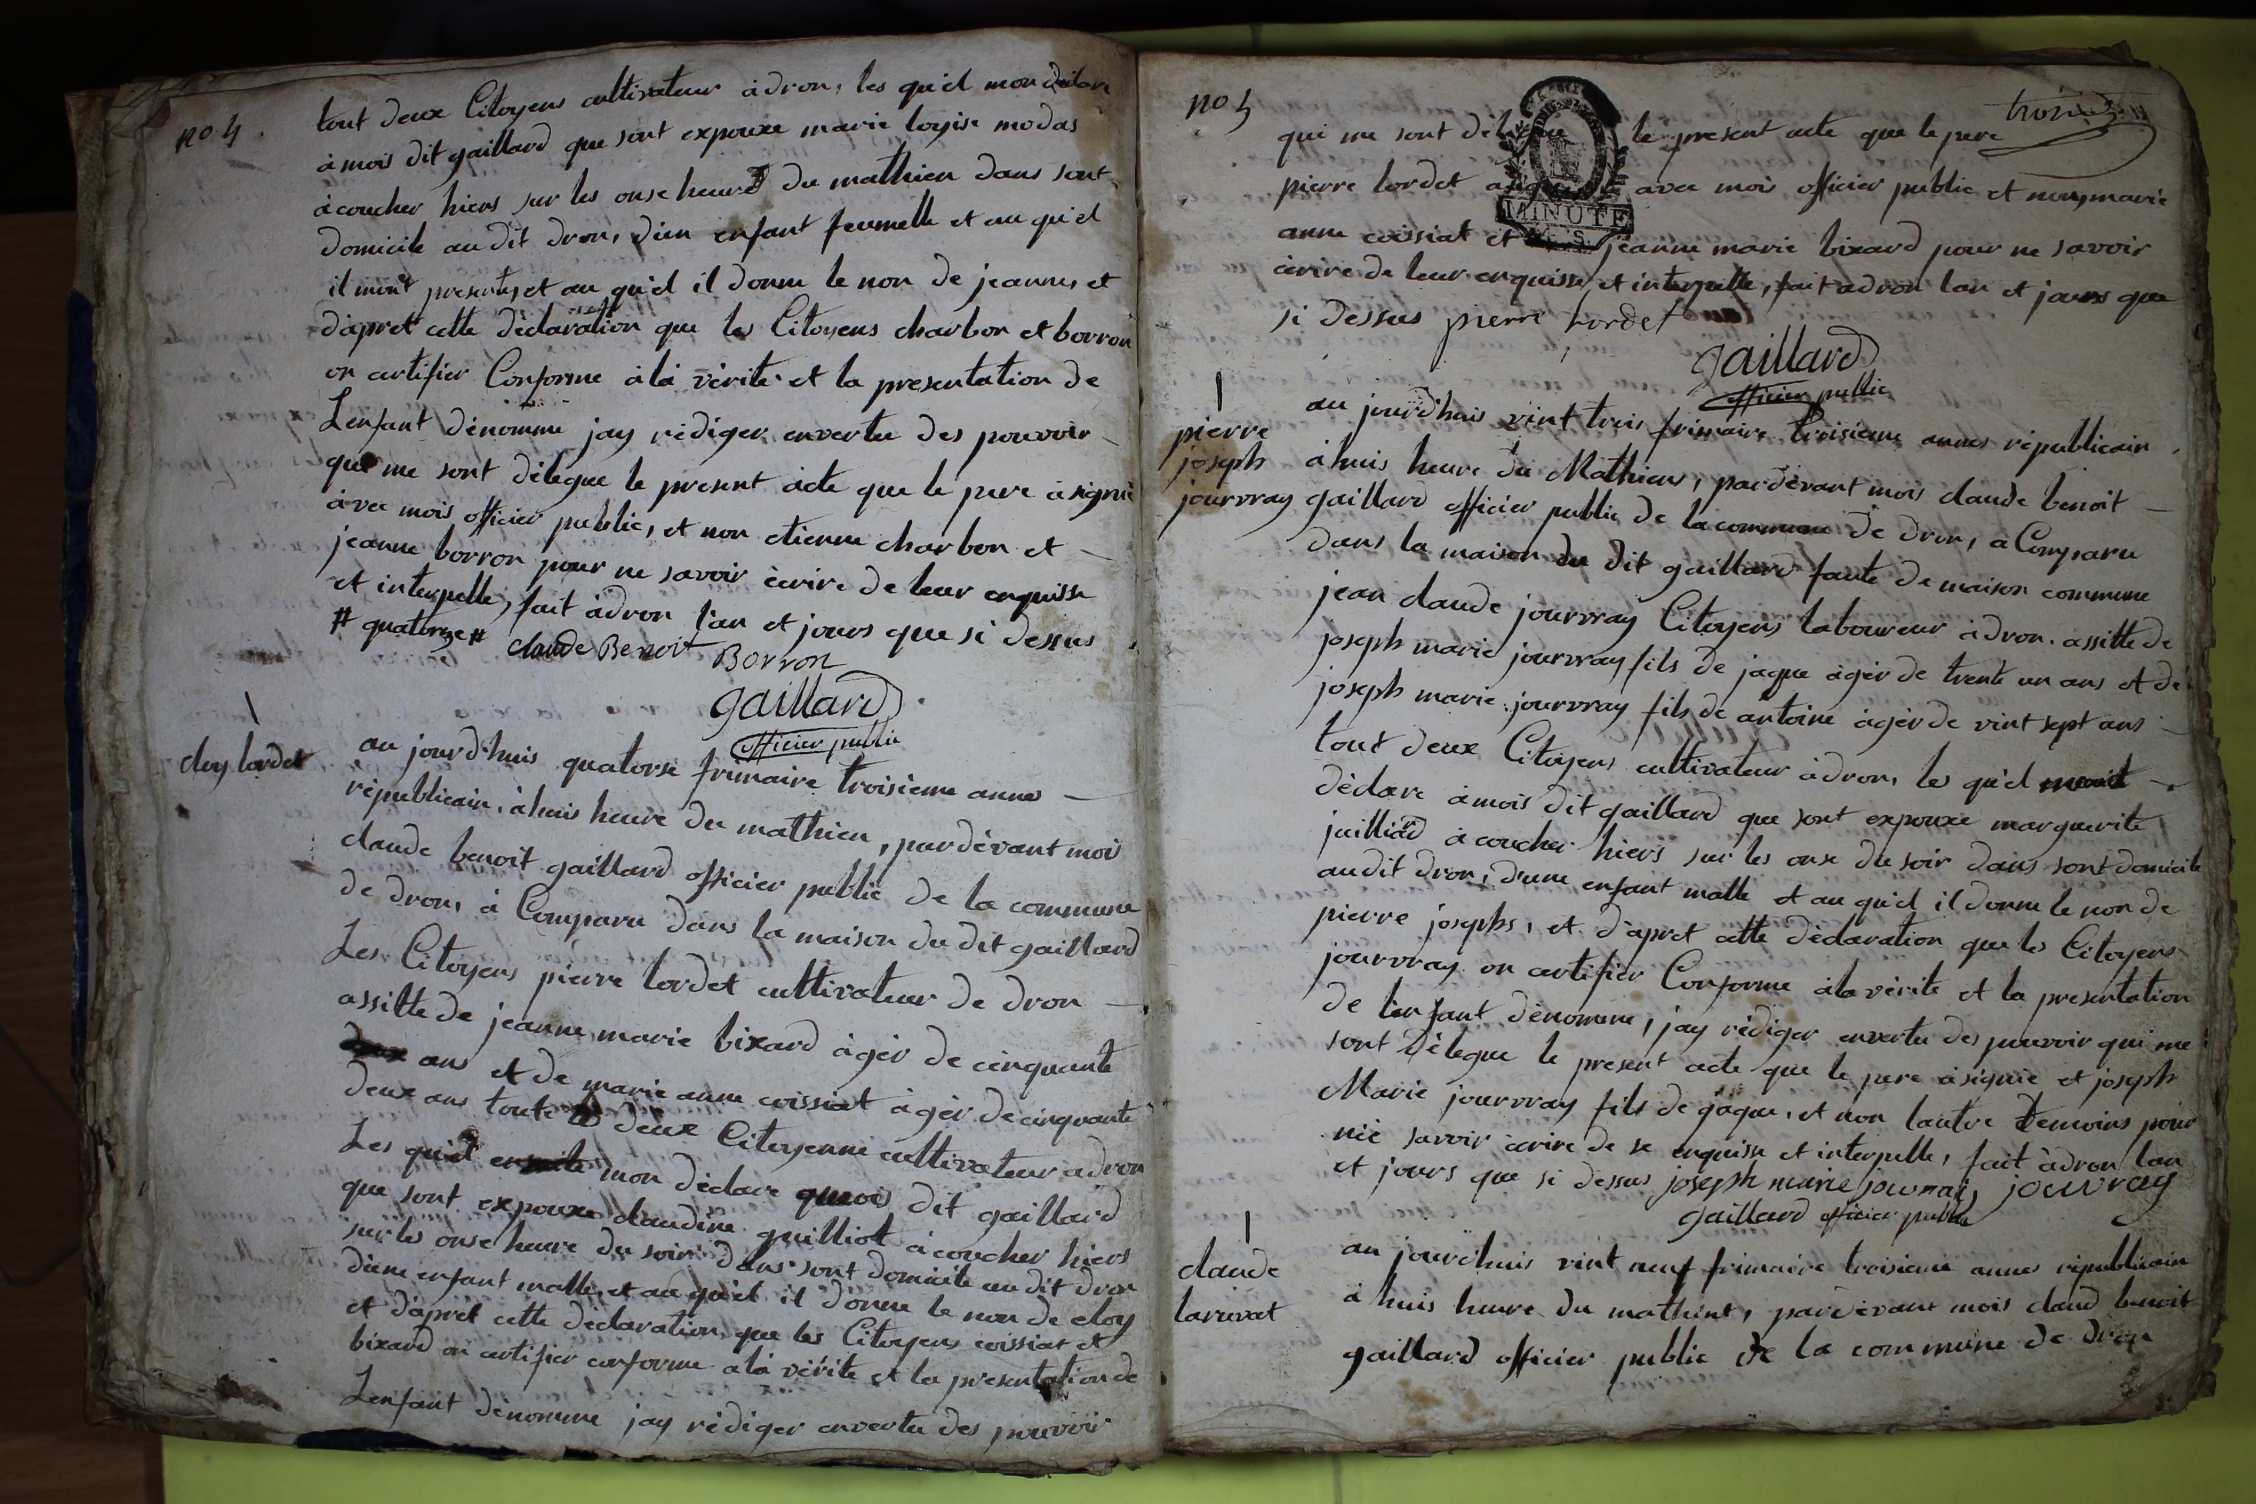 no 4
tout deux Citoyens cultivateur à dron, les qu'el mon déclare
à mois dit gaillard que sont expouxe marie loyise modas
à coucher hiers sur les onse heure du mathien dans sont
domicile au dit dron, d'un enfant feumelle et au qu'el
il mont presente, et au qu'el il donne le non de jeanne, et
d'apret cette déclaration que les Citoyens charbon et borron
on certifier Conforme à la vérité et la presentation de
L'enfant dénomme jay rédiger envertu des pouvoir
qui me sont délegue le present acte que le pere à signié
avec mois officier public, et non etienne charbon et
jeanne borron pour ne savoir écrire de leur enquisse
et interpelle, fait à dron l'an et jours que si dessus
# quatorze # claude Benoit Borron
gaillard
officier public
eloy tordet
au jourd'huis quatorse frimaire troisieme annes
républicain, à huis heure du mathien, pardévant mois
claude benoit gaillard officier public de la commune
de dron, à Comparu dans la maison du dit gaillard
Les Citoyens pierre tordet cultivateur de dron
assilte de jeanne marie bixard àgér de cinquante
ans et de marie anne coissiat àgér de cinquante
deux ans toute deux Citoyenne cultivateur a dron
Les qu'el mon déclare dit gaillard
que sont expouxe claudine guilliot à coucher hiers
sur les onse heure du soir dans sont domicile au dit dron
d'une enfant malle, et au qu'el il donne le non de eloy
et d'apret cette déclaration, que les Citoyens coissiat et
bixard on certifier conforme a la vérité et la presentation de
L'enfant dénomme jay rédiger envertu des pouvoir
no 5
trois
qui me sont délegue le present acte que le pere
pierre tordet avec mois officier public et non, marie
anne coissiat et jeanne marie bixard pour ne savoir
écrire de leur enquisse et interpelle, fait a dron lan et jours que
si dessus pierre tordet
gaillard
officier public
pierre
joseph
jourvray
au jourd'huis vint trois frimaire troisieme annes républicain
à huis heure du Mathiens, pardévant mois claude benoit
gaillard officier public de la commune de dron, a Comparu
dans la maison du dit gaillard faute de maison commune
jean claude jourvray Citoyens laboureur à dron. assilte de
joseph marie jourvray fils de jaque àgér de trente un ans et de
joseph marie jourvray fils de antoine àgér de vint sept ans
tout deux Citoyens cultivateur à dron, les qu'el
déclare à mois dit gaillard que sont expouxe marguerite
juilliard à coucher hiers sur les onse du soir dans sont domicile
au dit dron, d'une enfant malle et au qu'el il donne le non de
pierre josephs, et d'apret cette déclaration que les Citoyens
jourvray on certifier Conforme à la vérite et la presentation
de l'enfant dénomme, jay rédiger envertu des pouvoir qui me
sont délegue le present acte que le pere à signie et joseph
Marie jourvray fils de jaque, et non lautre temoins pour
nié savoir écrire de se enquisse et interpelle, fait à dron lan
et jours que si dessus joseph marie jouvray jouvray
gaillard officier public
claude
larivat
au jourd'huis vint neuf frimaire troisieme annes républicain
à huis heure du mathient, pardévant mois claud benoit
gaillard officier public de la commune de dron
MINUTE